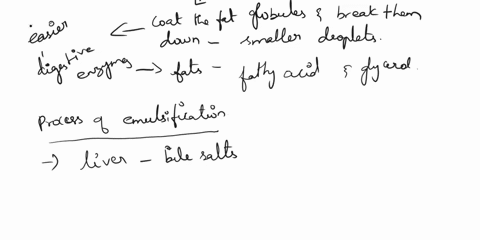 easier ← coat the fat globules & break them
down - smaller droplets.
digestive
enzymes → fats - fatty acid & glyarol.
Process of emulsification
→ liver - bile salts